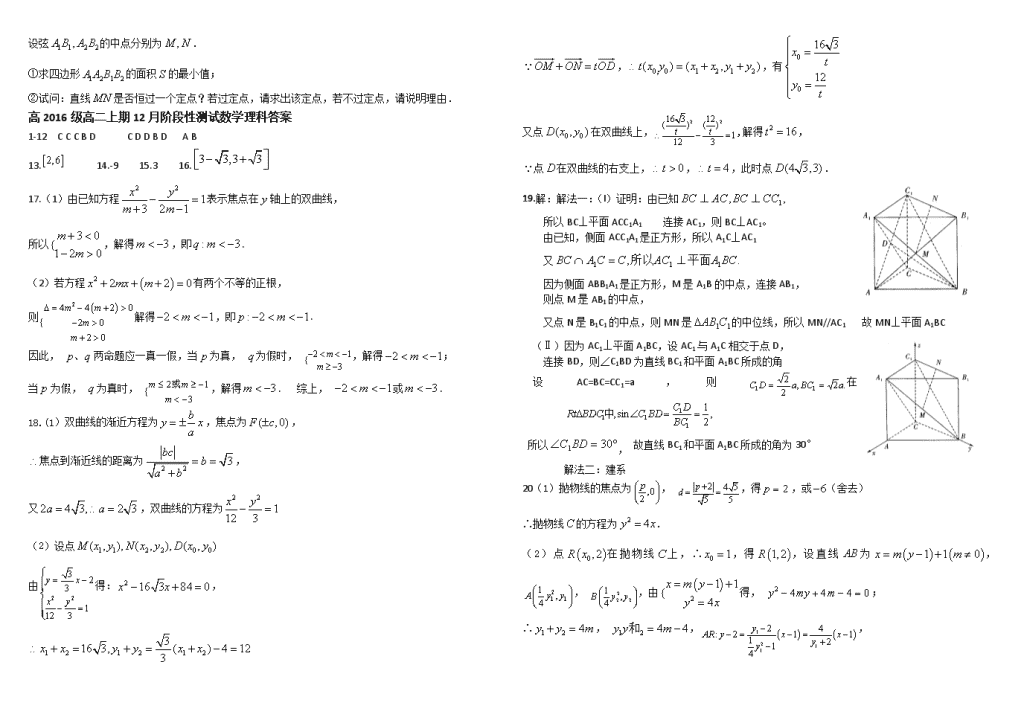 设弦 A₁B₁, A₂B₂ 的中点分别为 M, N.
①求四边形 A₁A₂B₁B₂ 的面积 S 的最小值;
②试问:直线 MN 是否恒过一个定点?若过定点,请求出该定点,若不过定点,请说明理由.
高 2016 级高二上期 12 月阶段性测试数学理科答案
1-12 C C C B D C D D B D A B
13. [2,6] 14.-9 15.3 16. [3-√3, 3+√3]
17.(1)由已知方程 x²/(m+3) - y²/(2m-1) = 1表示焦点在 y 轴上的双曲线,
所以 { m+3<0 1-2m>0 ,解得 m<-3,即 q : m<-3.
(2)若方程 x²+2mx+(m+2)=0有两个不等的正根,
则 { Δ=4m²-4(m+2)>0 -2m>0 m+2>0 解得 -2<m<-1,即 p : -2<m<-1.
因此, p、q 两命题应一真一假,当 p 为真, q 为假时, { -2<m<-1 m≥-3 ,解得 -2<m<-1;
当 p 为假, q 为真时, { m≤2或m≥-1 m<-3 ,解得 m<-3. 综上, -2<m<-1或 m<-3.
18.(1)双曲线的渐近方程为 y=±(b/a)x,焦点为 F(±c,0),
∴焦点到渐近线的距离为 |bc|/√(a²+b²) = b = √3,
又 2a=4√3,∴a=2√3,双曲线的方程为 x²/12 - y²/3 = 1
(2)设点 M(x₁,y₁), N(x₂,y₂), D(x₀,y₀)
由 { y=(√3/3)x-2 x²/12-y²/3=1 得: x²-16√3x+84=0,
∴ x₁+x₂=16√3, y₁+y₂=(√3/3)(x₁+x₂)-4=12
∵ OM+ON=tOD, ∴ t(x₀,y₀)=(x₁+x₂,y₁+y₂),有 { x₀=16√3/t y₀=12/t
又点 D(x₀,y₀) 在双曲线上,∴ (16√3/t)²/12 - (12/t)²/3 = 1,解得 t²=16,
∵点 D 在双曲线的右支上,∴ t>0, ∴ t=4,此时点 D(4√3,3).
19.解: 解法一:(Ⅰ)证明:由已知 BC⊥AC,BC⊥CC₁,
所以 BC⊥平面 ACC₁A₁ 连接 AC₁,则 BC⊥AC₁。
由已知,侧面 ACC₁A₁ 是正方形,所以 A₁C⊥AC₁
又 BC∩A₁C=C,所以AC₁⊥平面A₁BC.
因为侧面 ABB₁A₁ 是正方形,M 是 A₁B 的中点,连接 AB₁,
则点 M 是 AB₁ 的中点,
又点 N 是 B₁C₁ 的中点,则 MN 是 ΔAB₁C₁ 的中位线,所以 MN//AC₁ 故 MN⊥平面 A₁BC
(Ⅱ)因为 AC₁⊥平面 A₁BC,设 AC₁ 与 A₁C 相交于点 D,
连接 BD,则∠C₁BD 为直线 BC₁ 和平面 A₁BC 所成的角
设 AC=BC=CC₁=a , 则 C₁D=(√2/2)a,BC₁=√2a. 在
RtΔBDC₁中,sin∠C₁BD=C₁D/BC₁=1/2,
所以∠C₁BD=30°, 故直线 BC₁ 和平面 A₁BC 所成的角为 30°
解法二:建系
20(1)抛物线的焦点为 (p/2,0), d=|p+2|/√5=4√5/5,得 p=2,或-6(舍去)
∴抛物线 C 的方程为 y²=4x.
(2)点 R(x₀,2)在抛物线 C 上,∴x₀=1,得 R(1,2),设直线 AB 为 x=m(y-1)+1(m≠0),
A(¼y₁²,y₁), B(¼y₂²,y₂),由 { x=m(y-1)+1 y²=4x 得, y²-4my+4m-4=0;
∴ y₁+y₂=4m, y₁y和₂=4m-4, AR: y-2=(y₁-2)/(¼y₁²-1)(x-1)=4/(y₁+2)(x-1),
A₁ C₁ z N B₁ D M C A B
C₁ z N A₁ B₁ M C A B x y